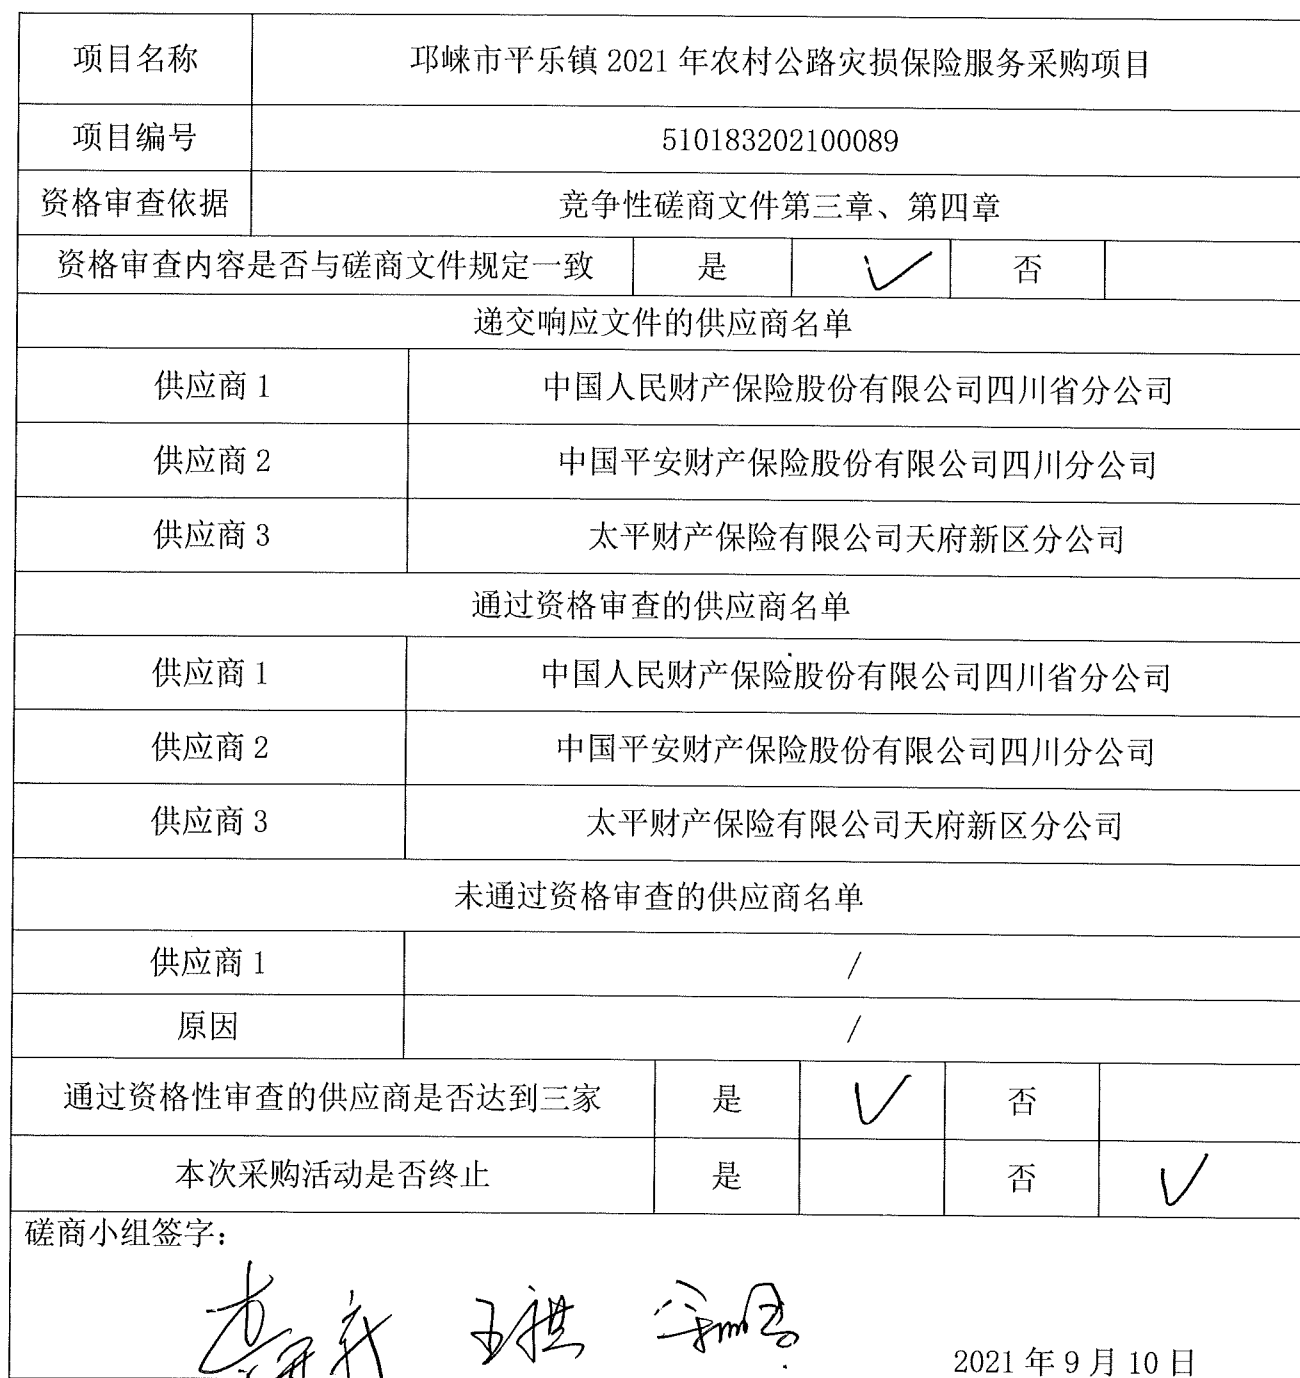 项目名称 邛崃市平乐镇 2021 年农村公路灾损保险服务采购项目
项目编号 510183202100089
资格审查依据 竞争性磋商文件第三章、第四章
资格审查内容是否与磋商文件规定一致 是 ✓ 否
递交响应文件的供应商名单
供应商 1 中国人民财产保险股份有限公司四川省分公司
供应商 2 中国平安财产保险股份有限公司四川分公司
供应商 3 太平财产保险有限公司天府新区分公司
通过资格审查的供应商名单
供应商 1 中国人民财产保险股份有限公司四川省分公司
供应商 2 中国平安财产保险股份有限公司四川分公司
供应商 3 太平财产保险有限公司天府新区分公司
未通过资格审查的供应商名单
供应商 1 /
原因 /
通过资格性审查的供应商是否达到三家 是 ✓ 否
本次采购活动是否终止 是 否 ✓
磋商小组签字：
2021 年 9 月 10 日